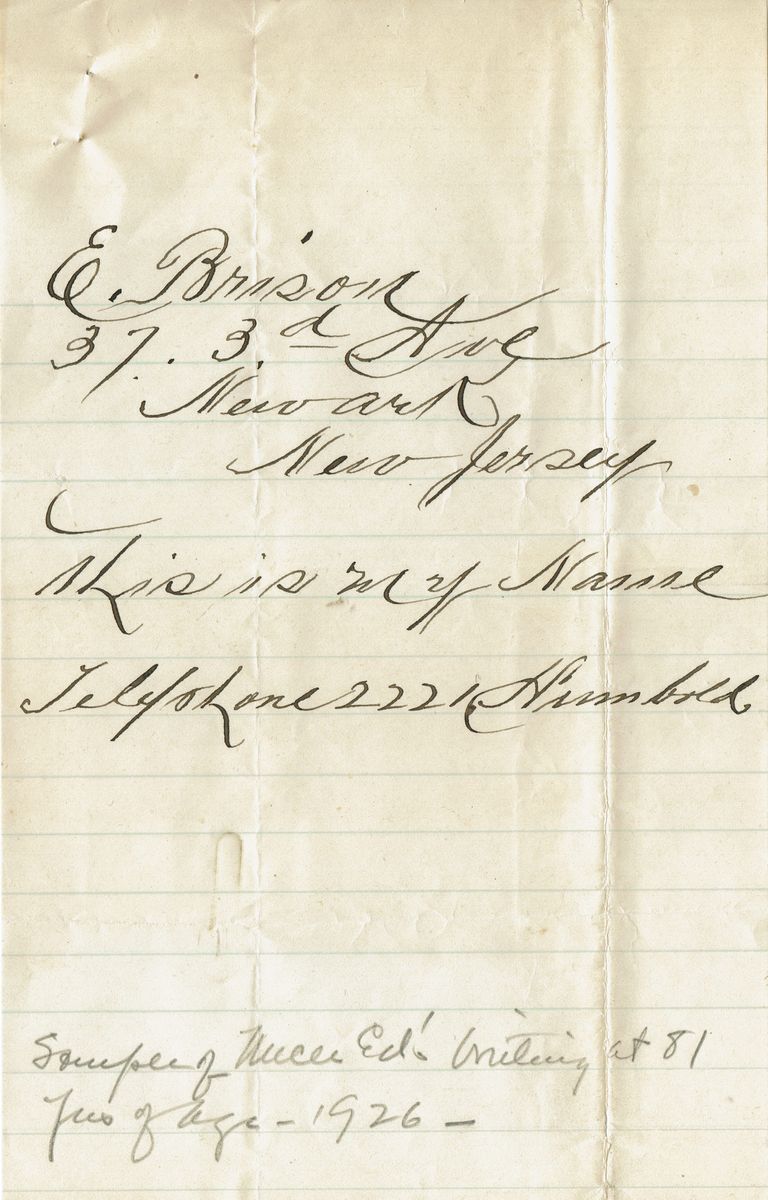 E. Brison
37. 3.d Ave
Newark
New Jersey
This is my Name
Telephone 2221, Humbold
Sample of Uncle Ed's Writing at 81
Yrs of Age - 1926 -